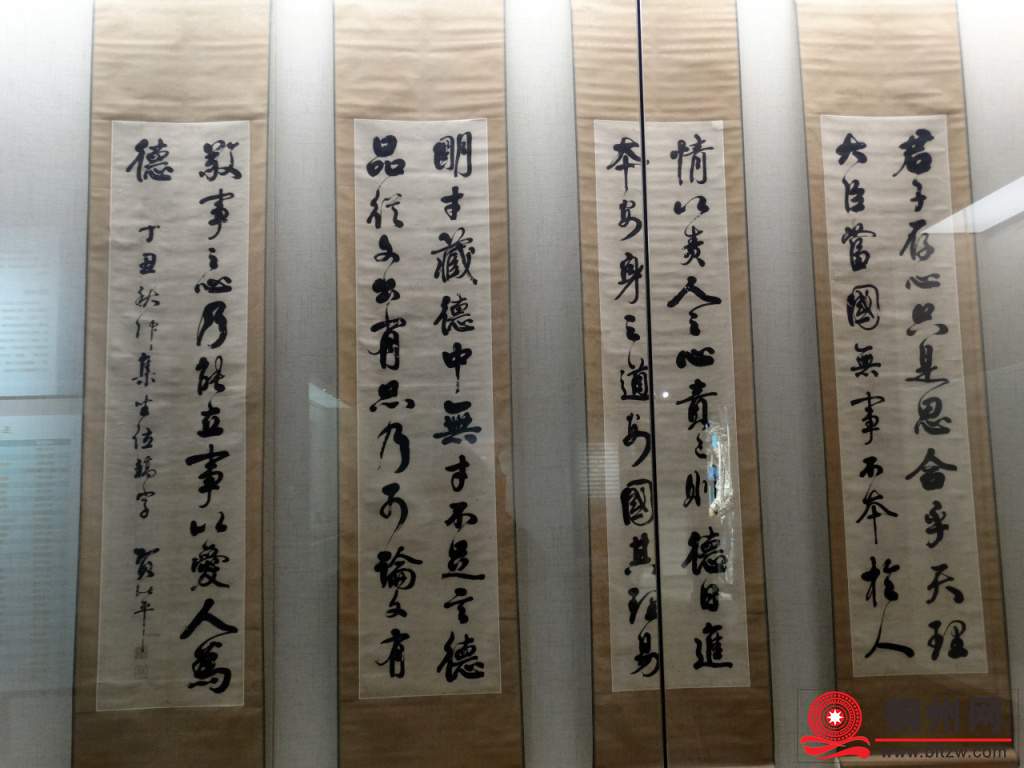 君子存心只是思合乎天理
大臣當國無事不本於人
情以責人之心責己則德日進
本安身之道安國其理易
明才藏德中無才不足言德
品從文出有品乃可論文有
敬事之心乃能立事以愛人為
德
丁丑秋仲集坐位稿字
州网
www.bltzw.com